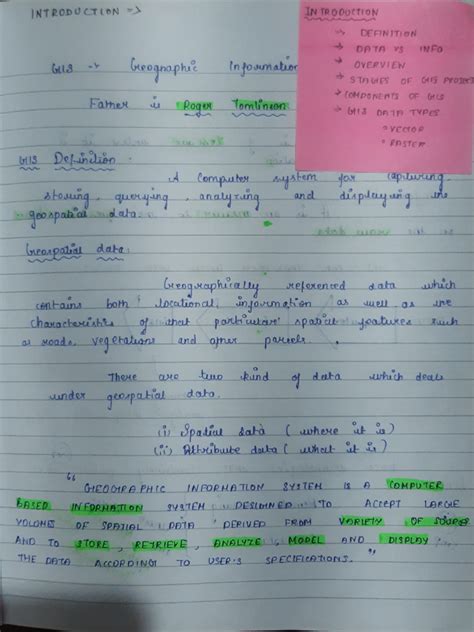 INTRODUCTION =>
GIS → Geographic Information
Father is Roger Tomlinson
INTRODUCTION
→ DEFINITION
→ DATA VS INFO
→ OVERVIEW
→ STAGES OF GIS PROJECT
→ COMPONENTS OF GIS
→ GIS DATA TYPES
* VECTOR
* RASTER
GIS Definition:
A Computer system for capturing,
storing, querying, analyzing and displaying the
geospatial data.
Geospatial data:
Geographically referenced data which
contains both locational information as well as the
characteristic of that particular spatial features such
as roads, vegetations and other parcels.
There are two kind of data which deals
under geospatial data.
(i) Spatial data (where it is)
(ii) Attribute data (what it is)
" GEOGRAPHIC INFORMATION SYSTEM IS A COMPUTER
BASED INFORMATION SYSTEM DESIGNED TO ACCEPT LARGE
VOLUMES OF SPATIAL DATA DERIVED FROM VARIETY OF SOURCES
AND TO STORE, RETRIEVE, ANALYZE, MODEL AND DISPLAY
THE DATA ACCORDING TO USER'S SPECIFICATIONS. "